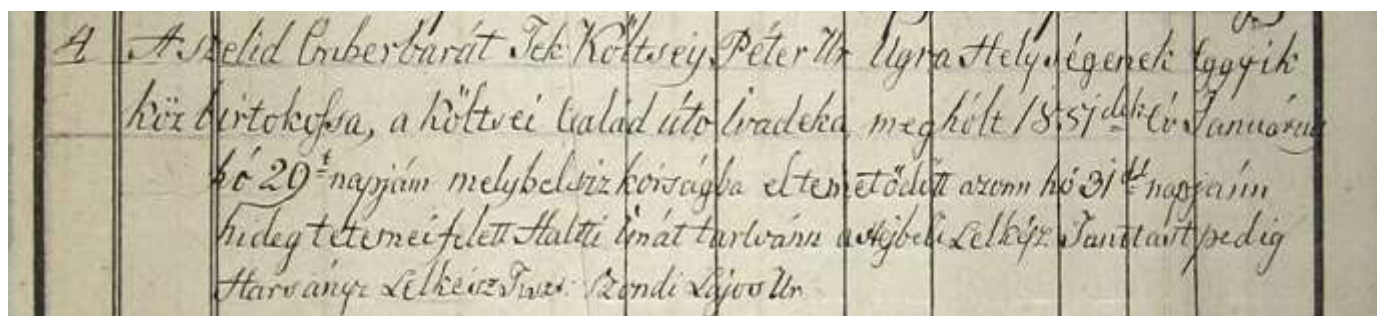 4 A szelid Emberbarát Tek Költsey Péter Ur Ugra Helységenek Eggyik
köz birtokossa, a költsei Család útó ivadeka, meghólt 1851dik év Januárius
hó 29t napján melybelviz kórságba eltemetődött azonn hó 31dt napjánn
hideg tetemei felett Haltti Imát tartvánn a Lelkész Tanittást pedig
Harsányi Lelkész Szondi Lajos Ur